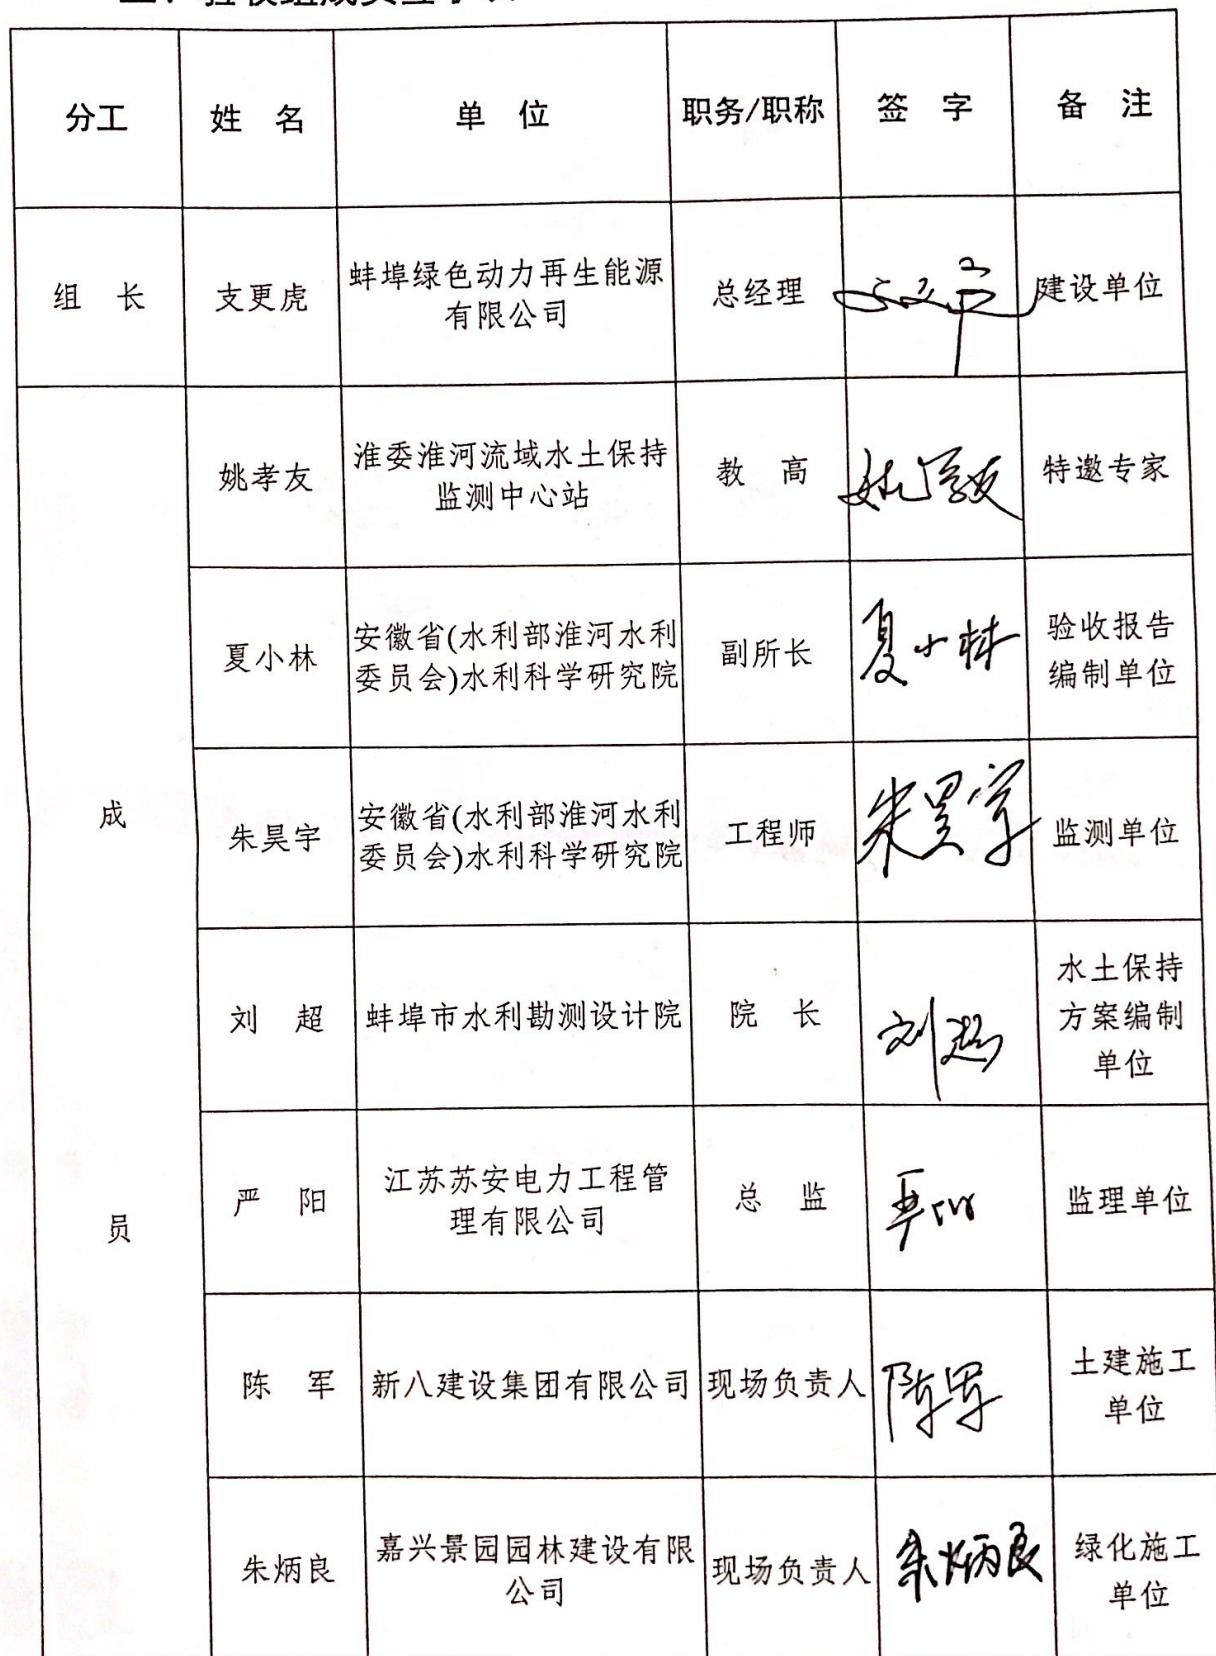 三、验收组成员签字表
分工 姓 名 单 位 职务/职称 签 字 备 注
组 长 支更虎 蚌埠绿色动力再生能源
有限公司 总经理 建设单位
成
员
姚孝友 淮委淮河流域水土保持
监测中心站 教 高 姚孝友 特邀专家
夏小林 安徽省(水利部淮河水利
委员会)水利科学研究院 副所长 夏小林 验收报告
编制单位
朱昊宇 安徽省(水利部淮河水利
委员会)水利科学研究院 工程师 朱昊宇 监测单位
刘 超 蚌埠市水利勘测设计院 院 长 刘超 水土保持
方案编制
单位
严 阳 江苏苏安电力工程管
理有限公司 总 监 严阳 监理单位
陈 军 新八建设集团有限公司 现场负责人 陈军 土建施工
单位
朱炳良 嘉兴景园园林建设有限
公司 现场负责人 朱炳良 绿化施工
单位